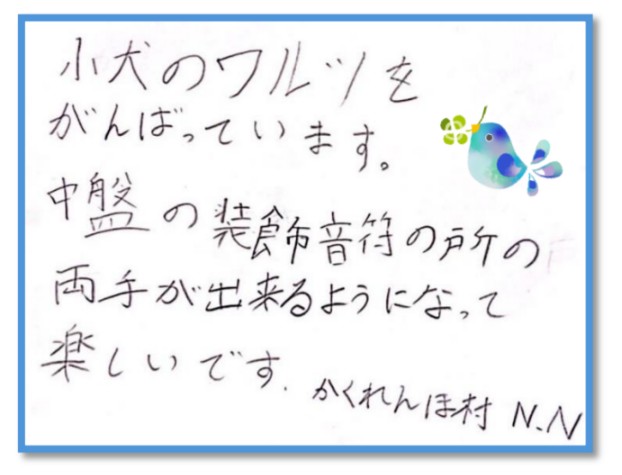 小犬のワルツを
がんばっています。
中盤の装飾音符の所の
両手が出来るようになって
楽しいです.
かくれんぼ村 N.N